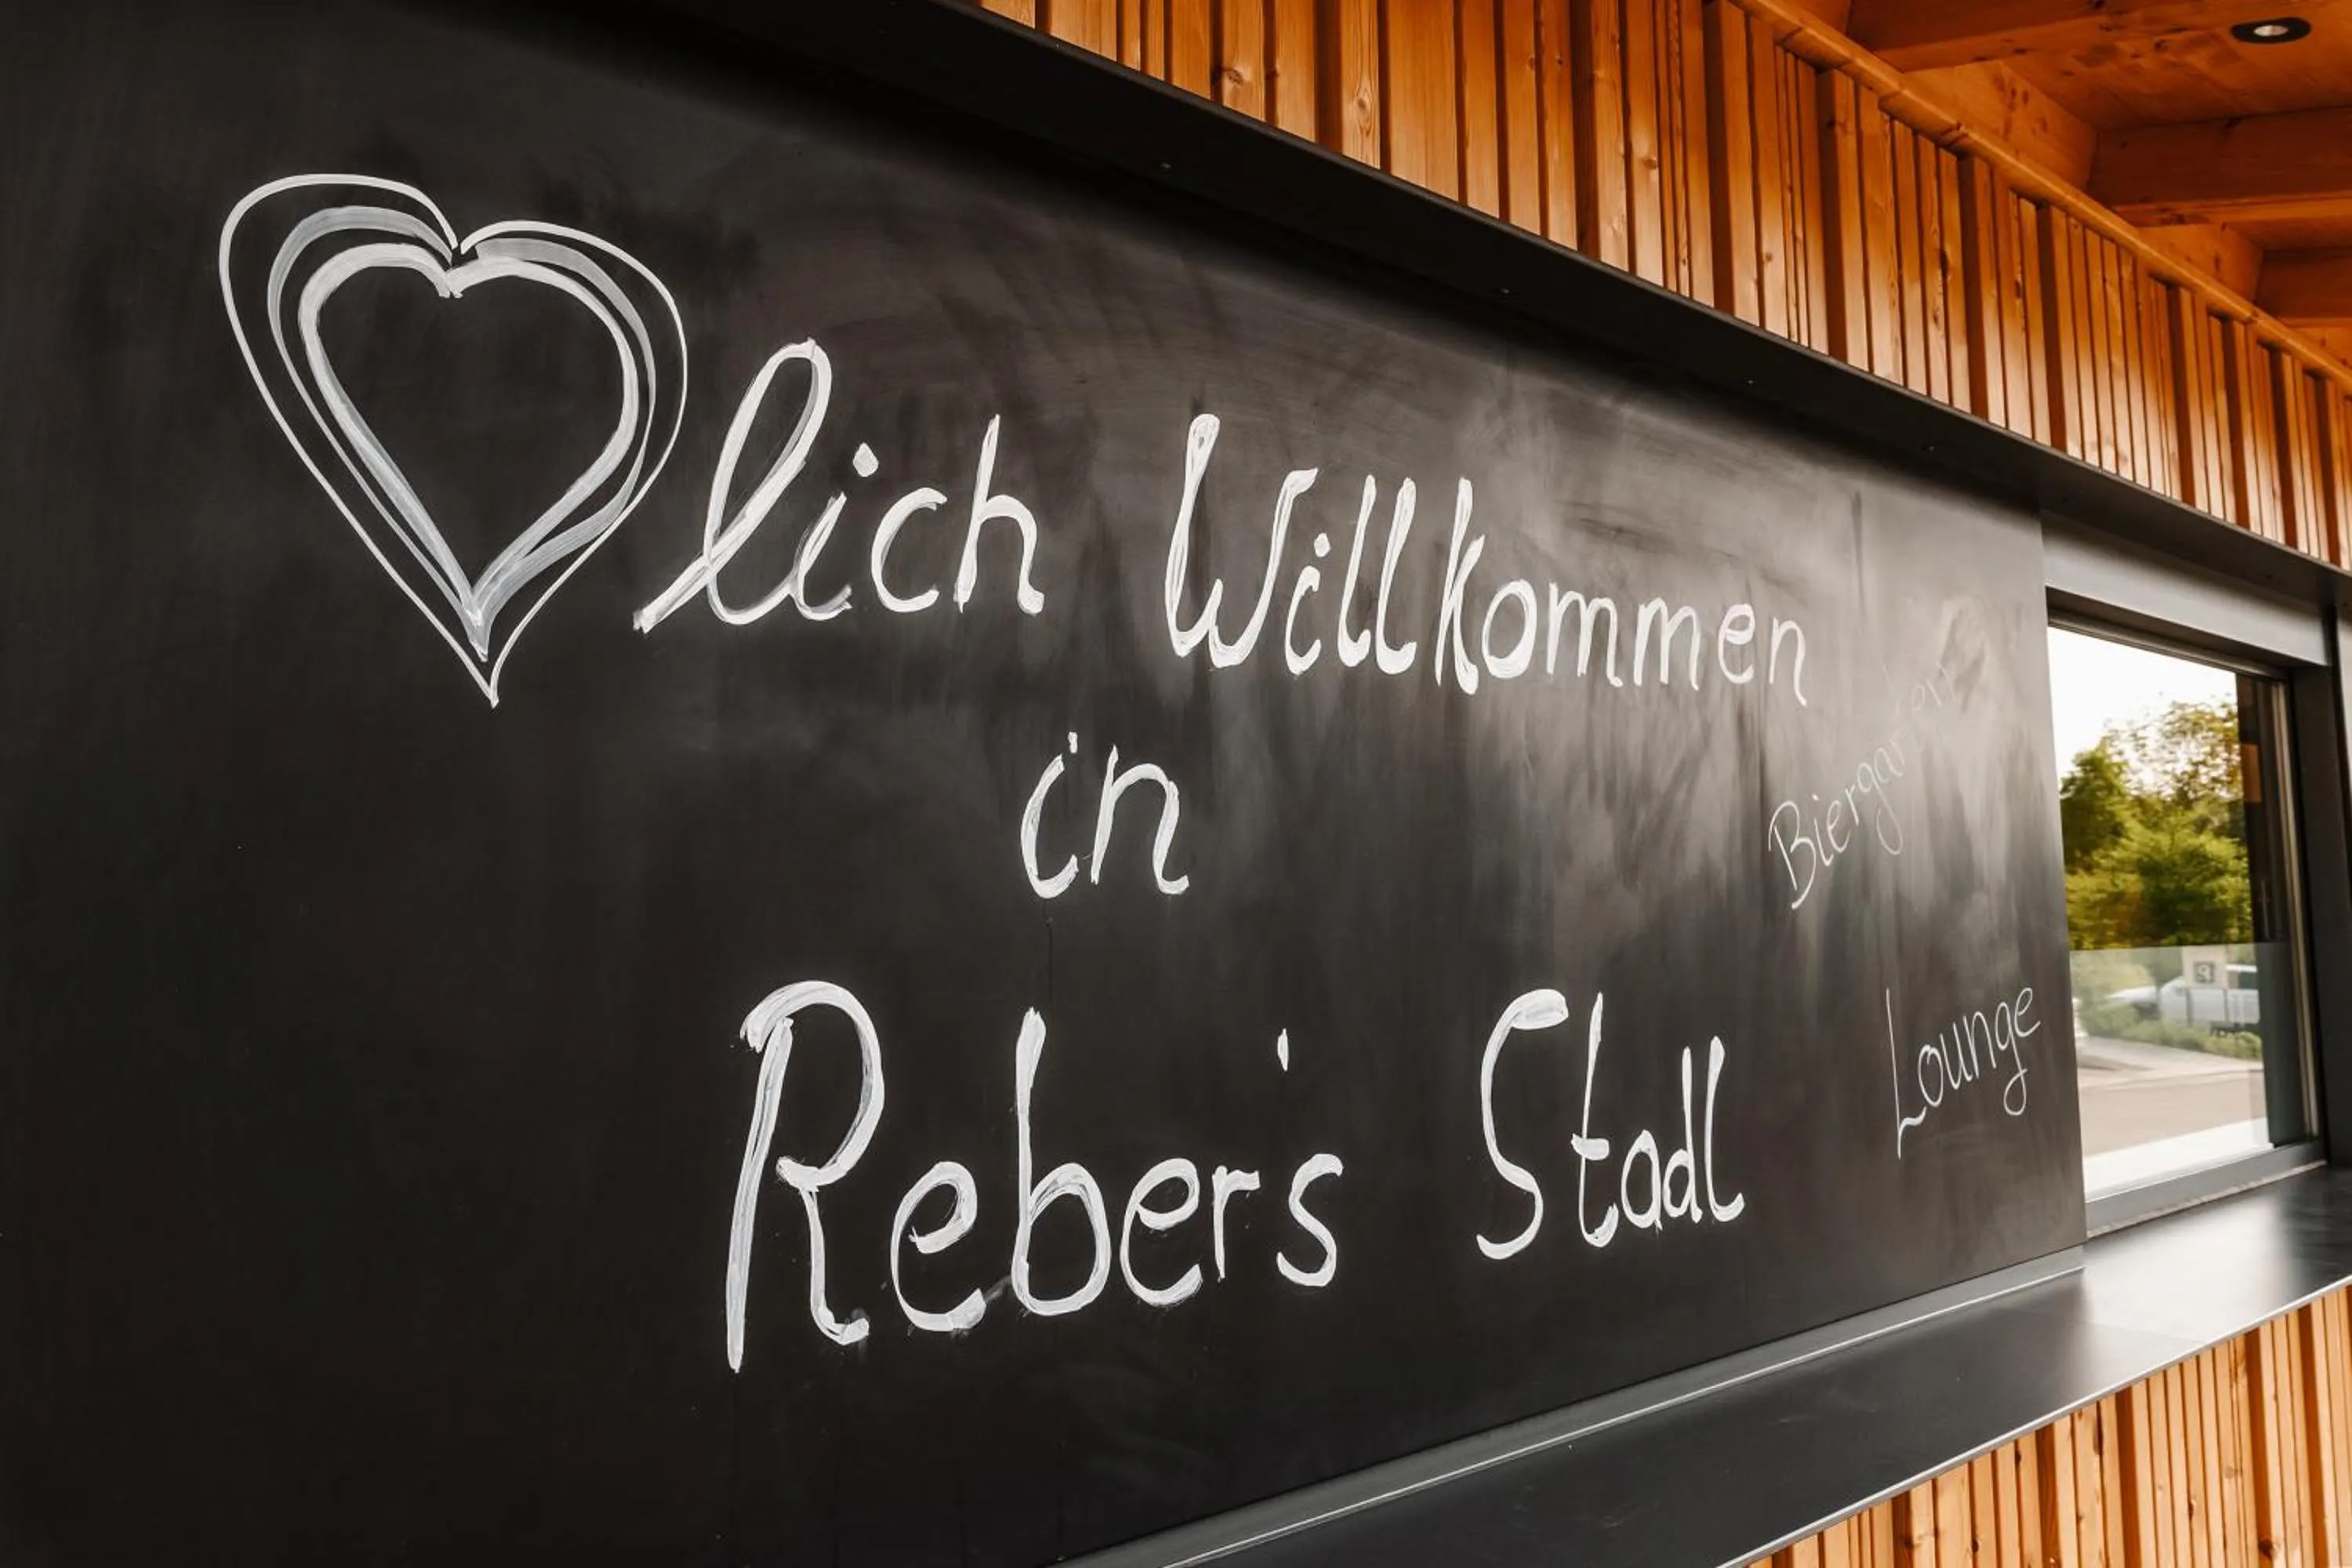 lich Willkommen
in
Reber's Stadl
Biergarten
Lounge